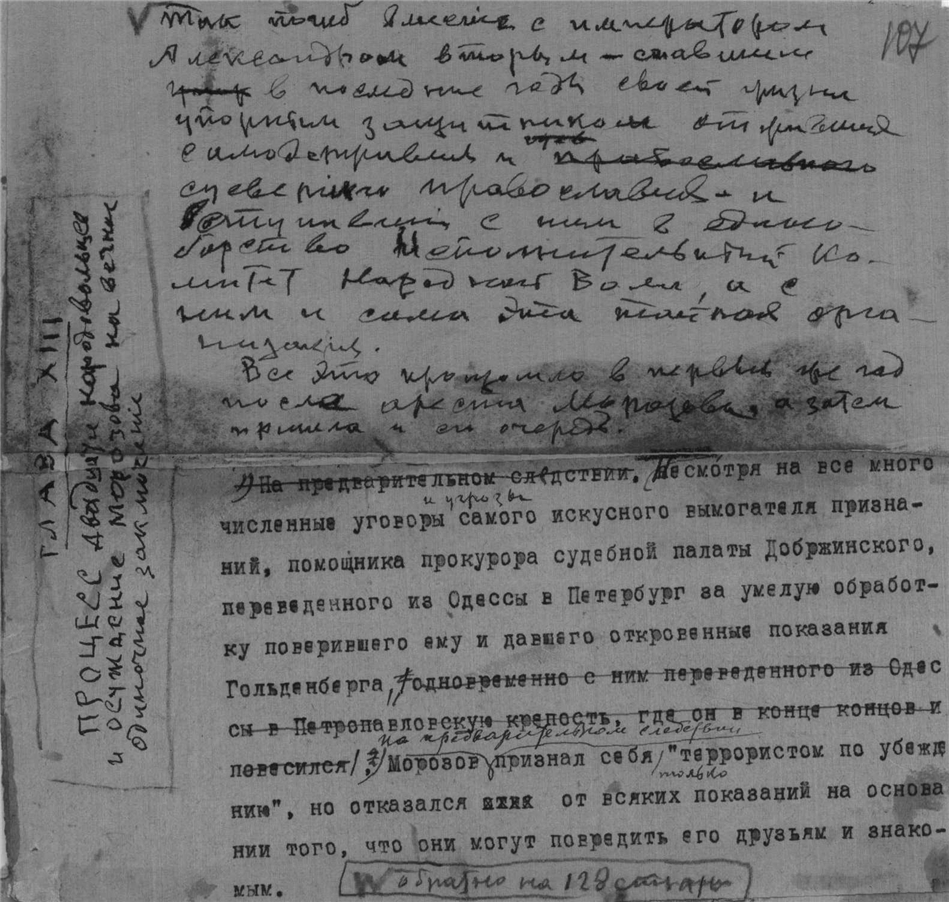 107
Так погиб вместе с императором
Александром вторым – ставшим
в последние годы своей жизни
упорным защитником отжившего
самодержавия и
суеверного православия – и
вступивший с ним в едино-
борство Исполнительный Ко-
митет Народной Воли, а с
ним и сама эта тайная орга-
низация.
Все это произошло в первый же год
после ареста Морозова, а затем
пришла и его очередь.
ГЛАВА XIII
ПРОЦЕСС двадцати народовольцев
и осуждение Морозова на вечное
одиночное заключение
На предварительном следствии. Несмотря на все много
и угрозы
численные уговоры самого искусного вымогателя призна-
ний, помощника прокурора судебной палаты Добржинского,
переведенного из Одессы в Петербург за умелую обработ-
ку поверившего ему и давшего откровенные показания
Гольденберга, одновременно с ним переведенного из Одес
сы в Петропавловскую крепость, где он в конце концов и
на предварительном следствии
повесился, Морозов признал себя "террористом по убежд
только
нию", но отказался от всяких показаний на основа
нии того, что они могут повредить его друзьям и знако-
мым.
обратно на 128 страницу